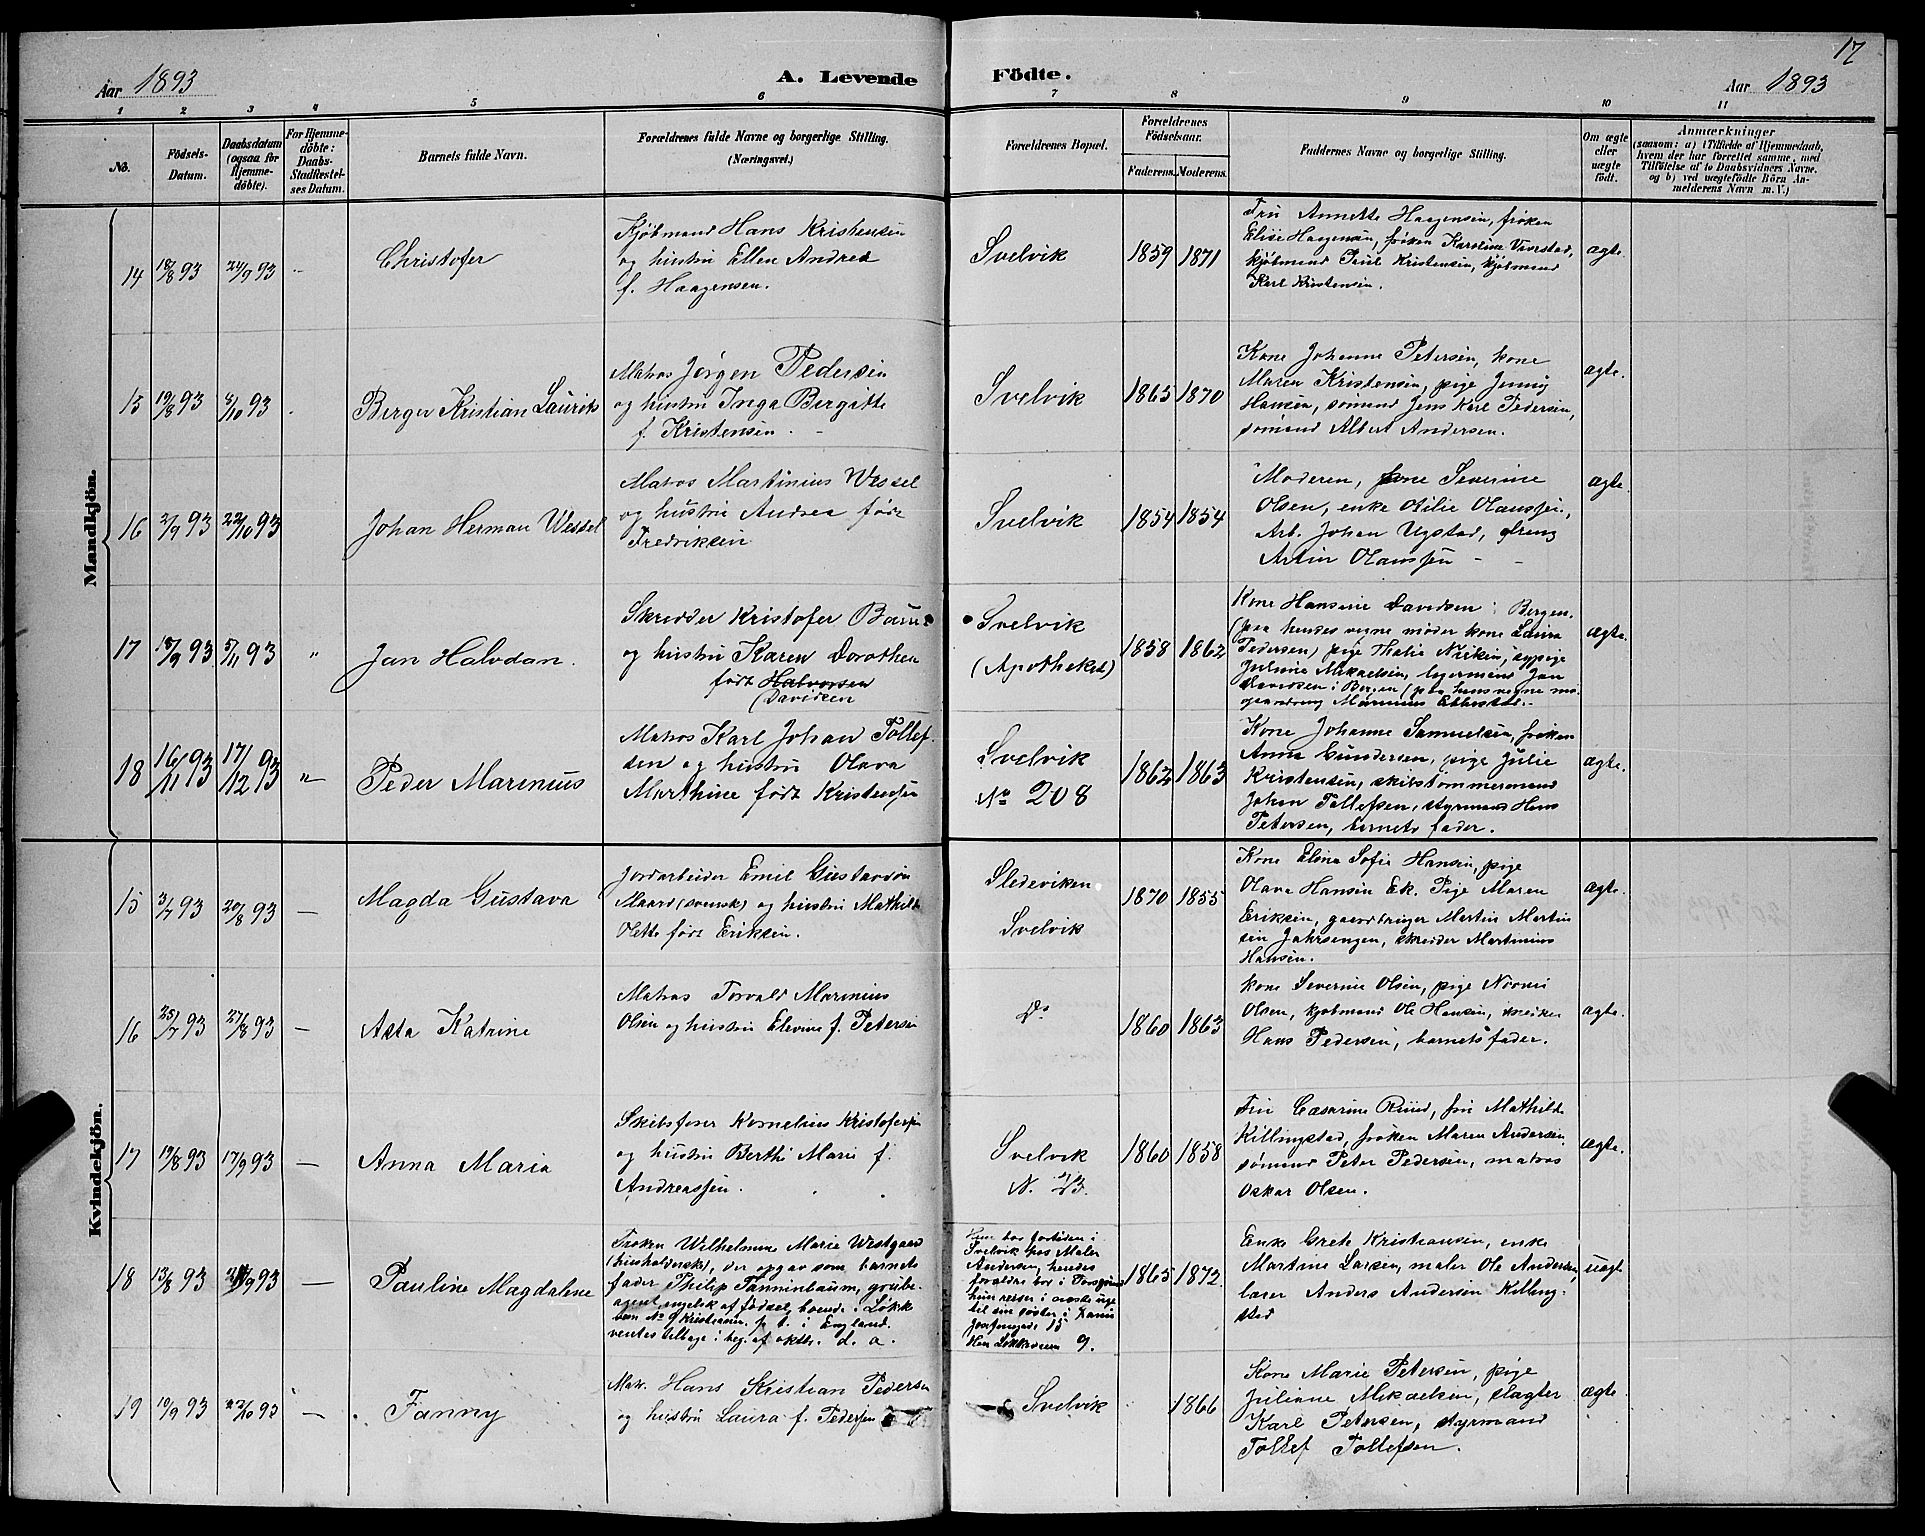 17
Aar 1893
A. Levende Födte.
Aar 1893
1 2 3 4 5 6 7 8 9 10 11
No.
Födsels-Datum.
Daabsdatum (ogsaa for Hjemme-döbte).
For Hjemme-döbte: Daabs-Stadfæstel-ses Datum.
Barnets fulde Navn.
Forældrenes fulde Navne og borgerlige Stilling. (Næringsvei.)
Forældrenes Bopæl.
Forældrenes Födselsaar.
Faderens. Moderens.
Faddernes Navne og borgerlige Stilling.
Om ægte eller uægte födt.
Anmærkninger
(saasom: a) i Tilfælde af Hjemmedaab,
hvem der har forrettet samme, med
Tilföielse af to Daabsvidners Navne.
og b) ved uægtefödte Börn An-
melderens Navn m. V.)
Mandkjön.
14 18/8 93 24/9 93 Christofer
Kjøbmand Hans Kristensen
og hustru Ellen Andrea
f. Haagensen.
Svelvik 1859 1871
Fru Annette Haagensen, frøken
Elise Haagensen, frøken Karoline
kjøbmand Paul Kristensen, kjøbmand
Karl Kristensen.
ægte.
15 19/8 93 8/10 93 Berger Kristian Laurits
Matros Jørgen Pedersen
og hustru Inga Bergitte
f. Kristensen.
Svelvik 1865 1870
Kone Johanne Petersen, kone
Maren Kristensen, pige Jenny
Hansen, sømand Jens Karl Pedersen,
sømand Albert Andersen.
ægte.
16 2/9 93 22/10 93 Johan Herman Wessel
Matros Martinius Wessel
og hustru Andrea født
Fredriksen
Svelvik 1854 1854
Moderen, kone Severine
Olsen, enke Otilie Olaussen,
Arb. Johan Ugstad, dreng
Olaussen
ægte
17 18/9 93 5/11 93 " Jan Halvdan.
Skredder Kristofer
og hustru Karen Dorothea
født Halvorsen
(Davidsen
Svelvik
(Apotheket)
1858 1862
Kone Hansine Davidsen i Bergen.
(paa hendes vegne møder kone Laura
Pedersen) pige Thalie
Juliane Mikaelsen, Jan
Davidsen i Bergen (paa hans vegne mø-
Marinius
ægte.
18 16/11 93 17/12 93 " Peder Marinius
Matros Karl Johan Tollef-
sen og hustru Olava
Marthine født Kristensen
Svelvik
No 208
1862 1863
Kone Johanne Samuelsen, frøken
Anna Gundersen, pige Julie
Kristensen, skibstømmermand
Johan Tollefsen, styrmand Hans
Petersen, barnets fader.
ægte.
Kvindekjön.
15 3/7 93 20/8 93 — Magda Gustava
Jordarbeider Emil Gustavson
Maard (svensk) og hustru Mathilde
Olette født Eriksen.
Sledeviken
Svelvik
1870 1855
Kone Elina Sofie Hansen, pige
Olava Hansen Ek. Pige Maren
Eriksen, gaardbruger Martin Martin
sen Jahrsengen, skredder Martinius
Hansen.
ægte.
16 25/7 93 27/8 93 — Asta Katrine
Matros Torvald Marinius
Olsen og hustru Elevine f. Petersen
Do
1860 1863
kone Severine Olsen, pige Noomi
Olsen, kjøbmand Ole Hansen,
Hans Pedersen, barnets fader.
ægte.
17 19/8 93 17/9 93 — Anna Maria
Skibsfører Kornelius Kristofersen
og hustru Berthe Marie f.
Andreassen.
Svelvik
N. 213.
1860 1858
Fru Cæsarine Ruud, fru Mathilde
Killingstad, frøken Maren Andersen
sømand Peter Pedersen, matros
Oskar Olsen.
ægte.
18 13/8 93 /9 93 — Pauline Magdalene
Frøken Wilhelmine Marie Westgaard
(husholderske), der opgav som barnets
fader Philip Tanninbaum, grube-
agent, engelsk af fødsel, boende i Løkk
No 9 Kristiania. p. t. i England.
ventes tilbage i beg. af oktbr. d. a.
Hun bor fortiden i
Svelvik hos Maler
Andersen, hendes
forældre bor i Porsgrund
hun reiser i næste uge
til sin søster i
15
9.
1865 1872.
Enke Grete Kristiansen, enke
Martine Larsen, maler Ole Andersen,
Anders Andersen Killing-
stad
uægt
19 10/9 93 22/10 93 — Fanny
Matr. Hans Kristian Pedersen
og hustru Laura f. Pedersen
Svelvik
1866
Kone Marie Petersen, pige
Juliane Mikaelsen, slagter
Karl Petersen, styrmand
Tollef Tollefsen.
ægte